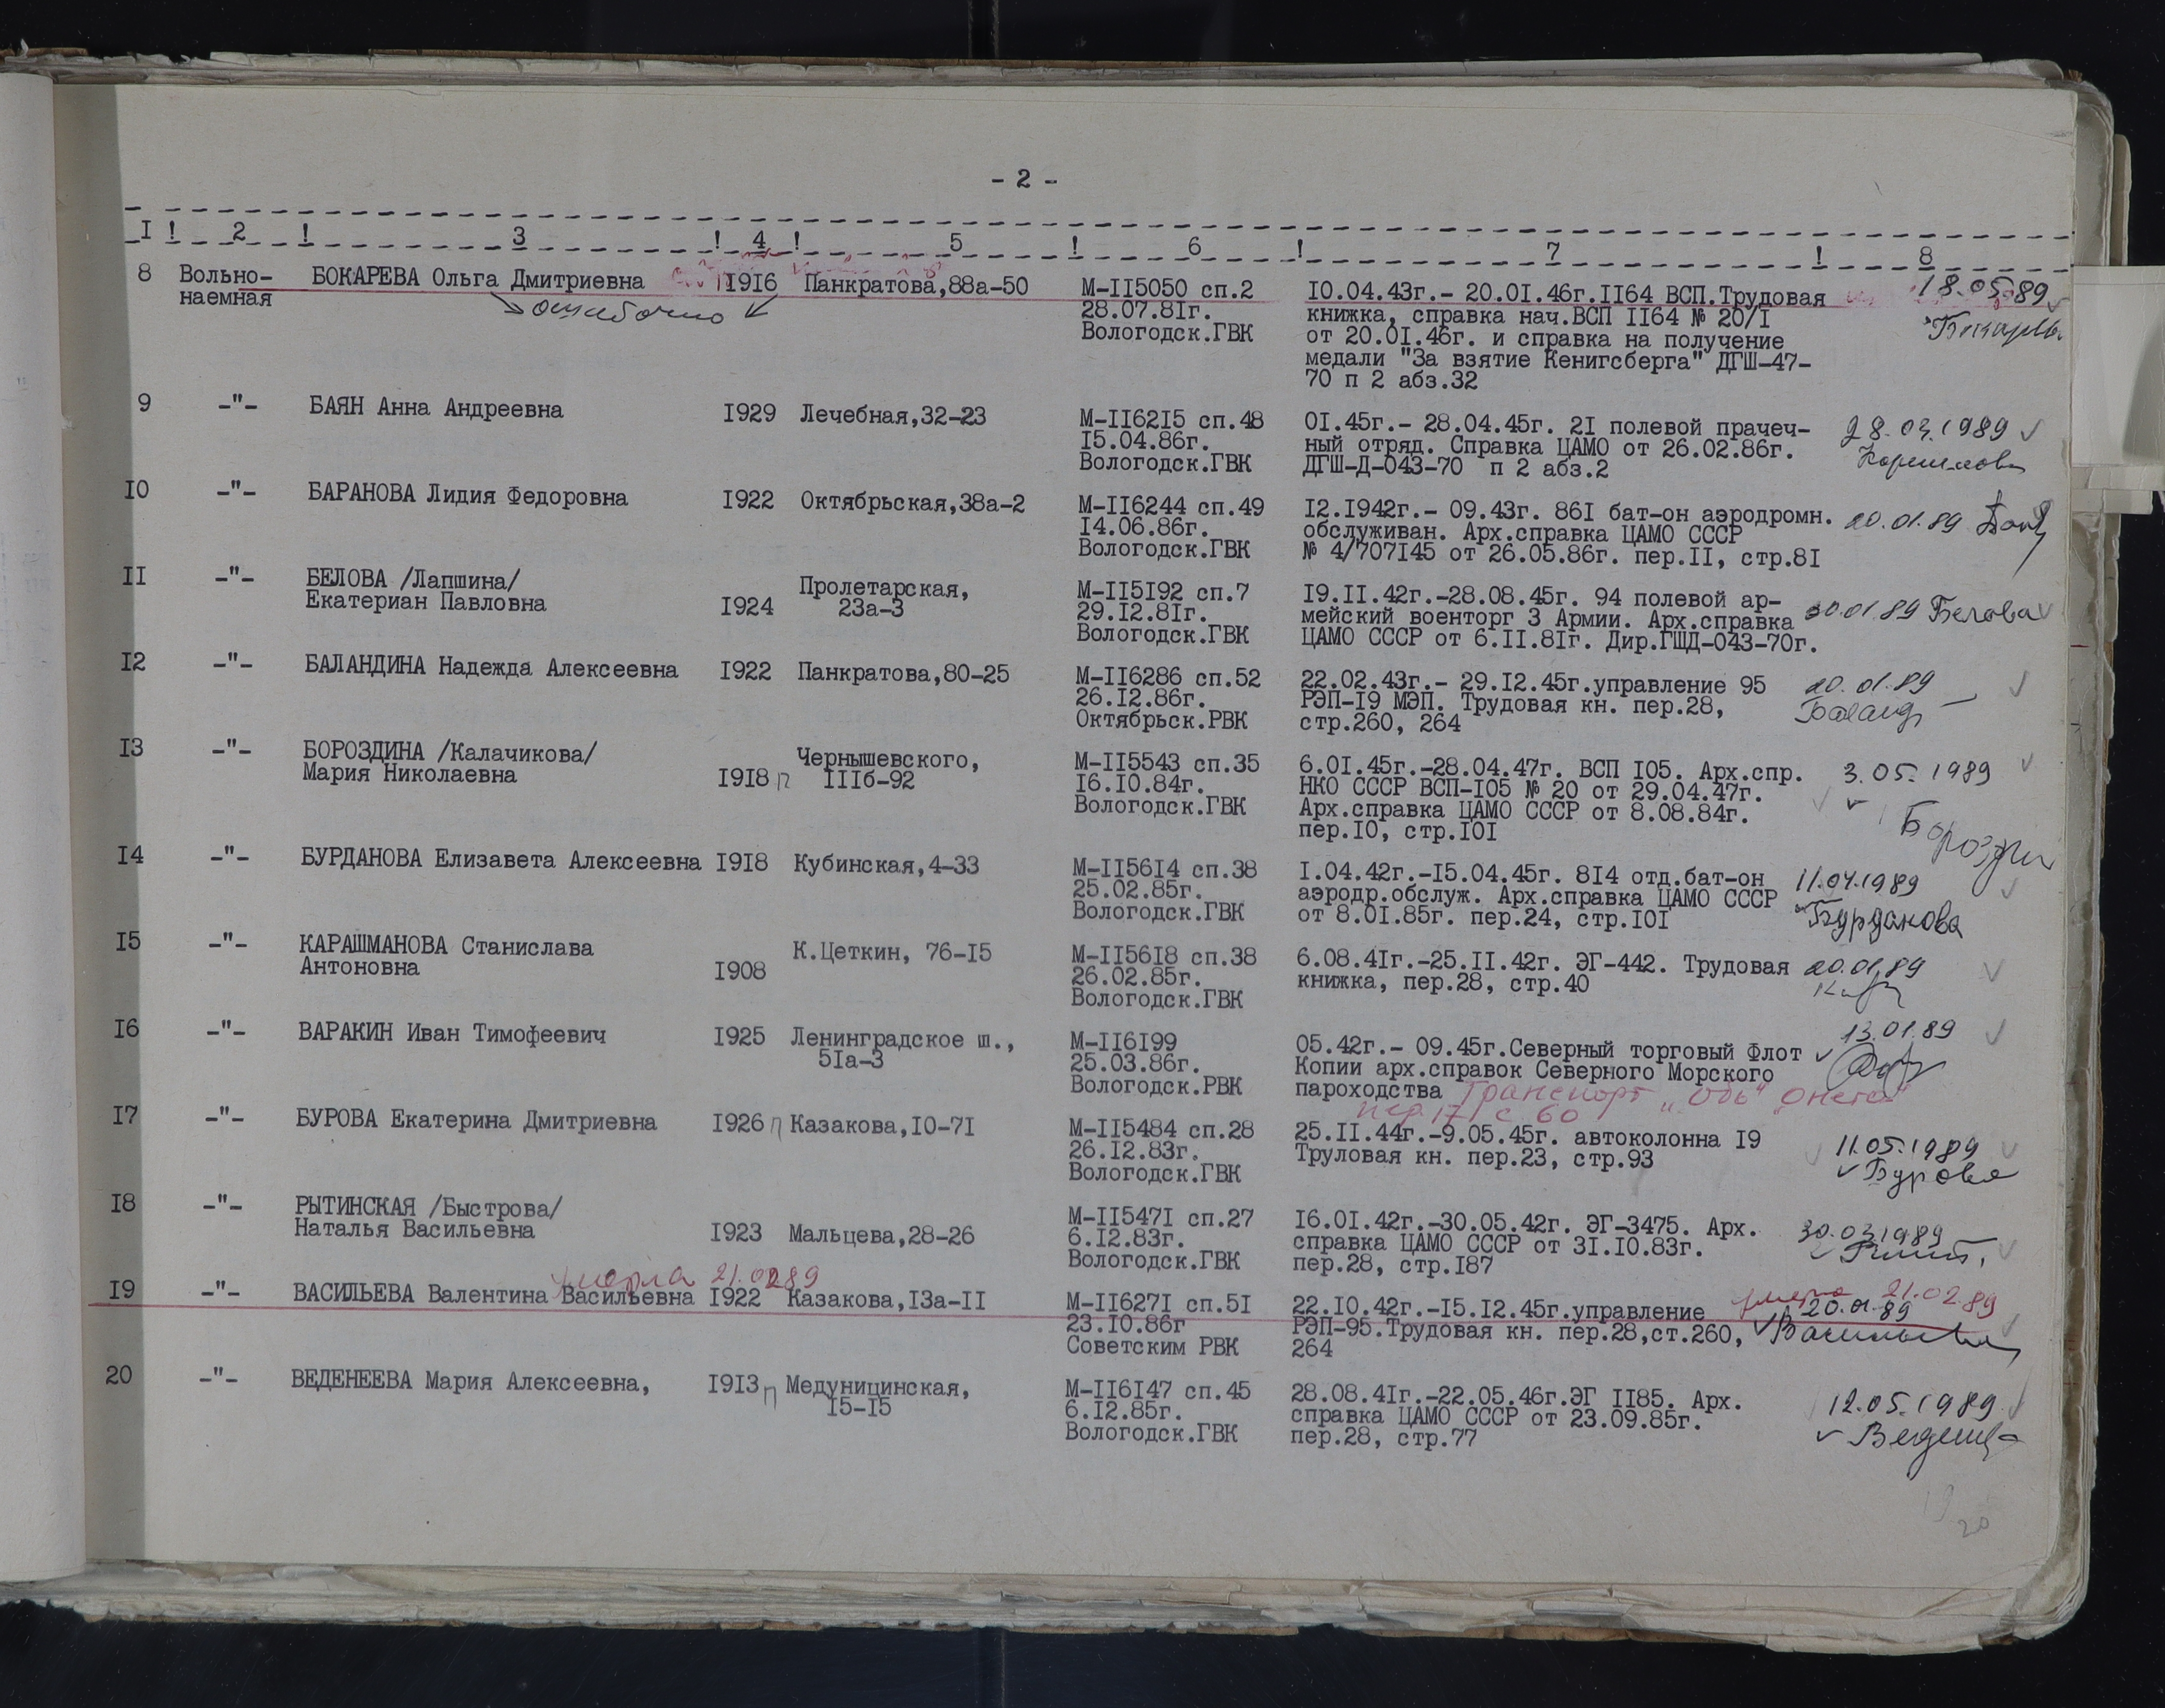 - 2 -
I ! 2 ! 3 ! 4 ! 5 ! 6 ! 7 ! 8
8 Вольно- БОКАРЕВА Ольга Дмитриевна 1916 Панкратова,88а-50 М-II5050 сп.2 I0.04.43г.- 20.0I.46г.II64 ВСП.Трудовая 18.05.89
наемная ошибочно 28.07.8Iг. книжка, справка нач.ВСП II64 № 20/I
Вологодск.ГВК от 20.0I.46г. и справка на получение
медали "За взятие Кенигсберга" ДГШ-47-
70 п 2 абз.32
9 -"- БАЯН Анна Андреевна I929 Лечебная,32-23 М-II62I5 сп.48 0I.45г.- 28.04.45г. 2I полевой прачеч- 28.03.1989
I5.04.86г. ный отряд. Справка ЦАМО от 26.02.86г.
Вологодск.ГВК ДГШ-Д-043-70 п 2 абз.2
I0 -"- БАРАНОВА Лидия Федоровна I922 Октябрьская,38а-2 М-II6244 сп.49 I2.I942г.- 09.43г. 86I бат-он аэродромн. 20.01.89
I4.06.86г. обслуживан. Арх.справка ЦАМО СССР
Вологодск.ГВК № 4/707I45 от 26.05.86г. пер.II, стр.8I
II -"- БЕЛОВА /Лапшина/ Пролетарская, М-II5I92 сп.7 I9.II.42г.-28.08.45г. 94 полевой ар-
Екатериан Павловна I924 23а-3 29.I2.8Iг. мейский военторг 3 Армии. Арх.справка 30.01.89 Белова
Вологодск.ГВК ЦАМО СССР от 6.II.8Iг. Дир.ГШД-043-70г.
I2 -"- БАЛАНДИНА Надежда Алексеевна I922 Панкратова,80-25 М-II6286 сп.52 22.02.43г.- 29.I2.45г.управление 95 20.01.89
26.I2.86г. РЭП-I9 МЭП. Трудовая кн. пер.28, Баланд
Октябрьск.РВК стр.260, 264
I3 -"- БОРОЗДИНА /Калачикова/ Чернышевского, М-II5543 сп.35 6.0I.45г.-28.04.47г. ВСП I05. Арх.спр. 3.05.1989
Мария Николаевна I9I8 п IIIб-92 I6.I0.84г. НКО СССР ВСП-I05 № 20 от 29.04.47г.
Вологодск.ГВК Арх.справка ЦАМО СССР от 8.08.84г.
пер.I0, стр.I0I
I4 -"- БУРДАНОВА Елизавета Алексеевна I9I8 Кубинская,4-33 М-II56I4 сп.38 I.04.42г.-I5.04.45г. 8I4 отд.бат-он 11.04.1989
25.02.85г. аэродр.обслуж. Арх.справка ЦАМО СССР
Вологодск.ГВК от 8.0I.85г. пер.24, стр.I0I Бурданова
I5 -"- КАРАШМАНОВА Станислава К.Цеткин, 76-I5 М-II56I8 сп.38 6.08.4Iг.-25.II.42г. ЭГ-442. Трудовая 20.01.89
Антоновна I908 26.02.85г. книжка, пер.28, стр.40
Вологодск.ГВК
I6 -"- ВАРАКИН Иван Тимофеевич I925 Ленинградское ш., М-II6I99 05.42г.- 09.45г.Северный торговый Флот 13.01.89
5Iа-3 25.03.86г. Копии арх.справок Северного Морского
Вологодск.РВК пароходства Транспорт „Обь" „Онега"
пер.17 с 60
I7 -"- БУРОВА Екатерина Дмитриевна I926 п Казакова,I0-7I М-II5484 сп.28 25.II.44г.-9.05.45г. автоколонна I9 11.05.1989
26.I2.83г. Труловая кн. пер.23, стр.93 Бурова
Вологодск.ГВК
I8 -"- РЫТИНСКАЯ /Быстрова/ М-II547I сп.27 I6.0I.42г.-30.05.42г. ЭГ-3475. Арх. 30.03.1989
Наталья Васильевна I923 Мальцева,28-26 6.I2.83г. справка ЦАМО СССР от 3I.I0.83г.
Вологодск.ГВК пер.28, стр.I87
умерла 21.02.89
I9 -"- ВАСИЛЬЕВА Валентина Васильевна I922 Казакова,I3а-II М-II627I сп.5I 22.I0.42г.-I5.I2.45г.управление умерла 21.02.89
23.I0.86г РЭП-95.Трудовая кн. пер.28,ст.260, 20.01.89 Васильева
Советским РВК 264
20 -"- ВЕДЕНЕЕВА Мария Алексеевна, I9I3 п Медуницинская, М-II6I47 сп.45 28.08.4Iг.-22.05.46г.ЭГ II85. Арх. 12.05.1989
I5-I5 6.I2.85г. справка ЦАМО СССР от 23.09.85г.
Вологодск.ГВК пер.28, стр.77
20